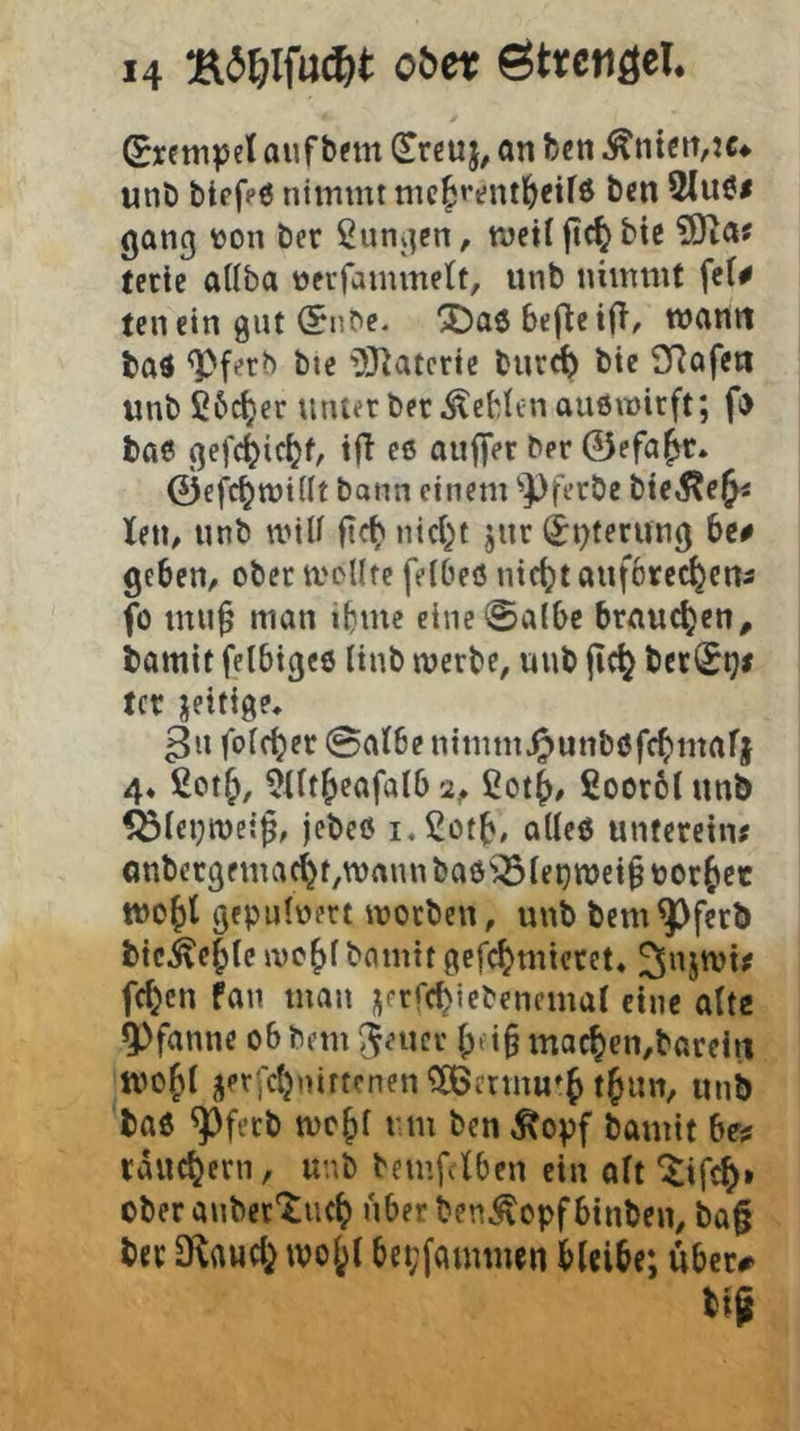 14 Köhlsucht oder Strengel.
Exempel auf dem Creuz, an den Knien, ꝛc.
und dieses nimmt mehrentheils den Aus-
gang von der Lungen, weil sich die Ma-
terie allda versammelt, und nimmt sel-
ten ein gut Ende. Das beste ist, wann
das Pferd die Materie durch die Nasen
und Löcher unter der Kehlen auswirft; so
das geschicht, ist es ausser der Gefahr.
Geschwillt dann einem Pferde die Keh-
len, und will sich nicht zur Eyterung be-
geben, oder wollte selbes nicht aufbrechen-
so muß man ihme eine Salbe brauchen,
damit selbiges lind werde, und sich der Ey-
ter zeitige.
Zu solcher Salbe nimm Hundsschmalz
4. Loth, Altheasalb 2. Loth, Looröl und
Bleyweiß, jedes 1. Loth, alles unterein-
andergemacht, wann das Bleyweiß vorher
wohl gepulvert worden, und dem Pferd
die Kehle wohl damit geschmieret. Inzwi-
schen kan man zerschiedenemal eine alte
Pfanne ob dem Feuer heiß machen, darein
wohl zerschnittenen Wermuth thun, und
das Pferd wohl um den Kopf damit be-
räuchern, und demselben ein alt Tisch-
oder ander Tuch über den Kopf binden, daß
der Rauch wohl beysammen bleibe; über-
diß